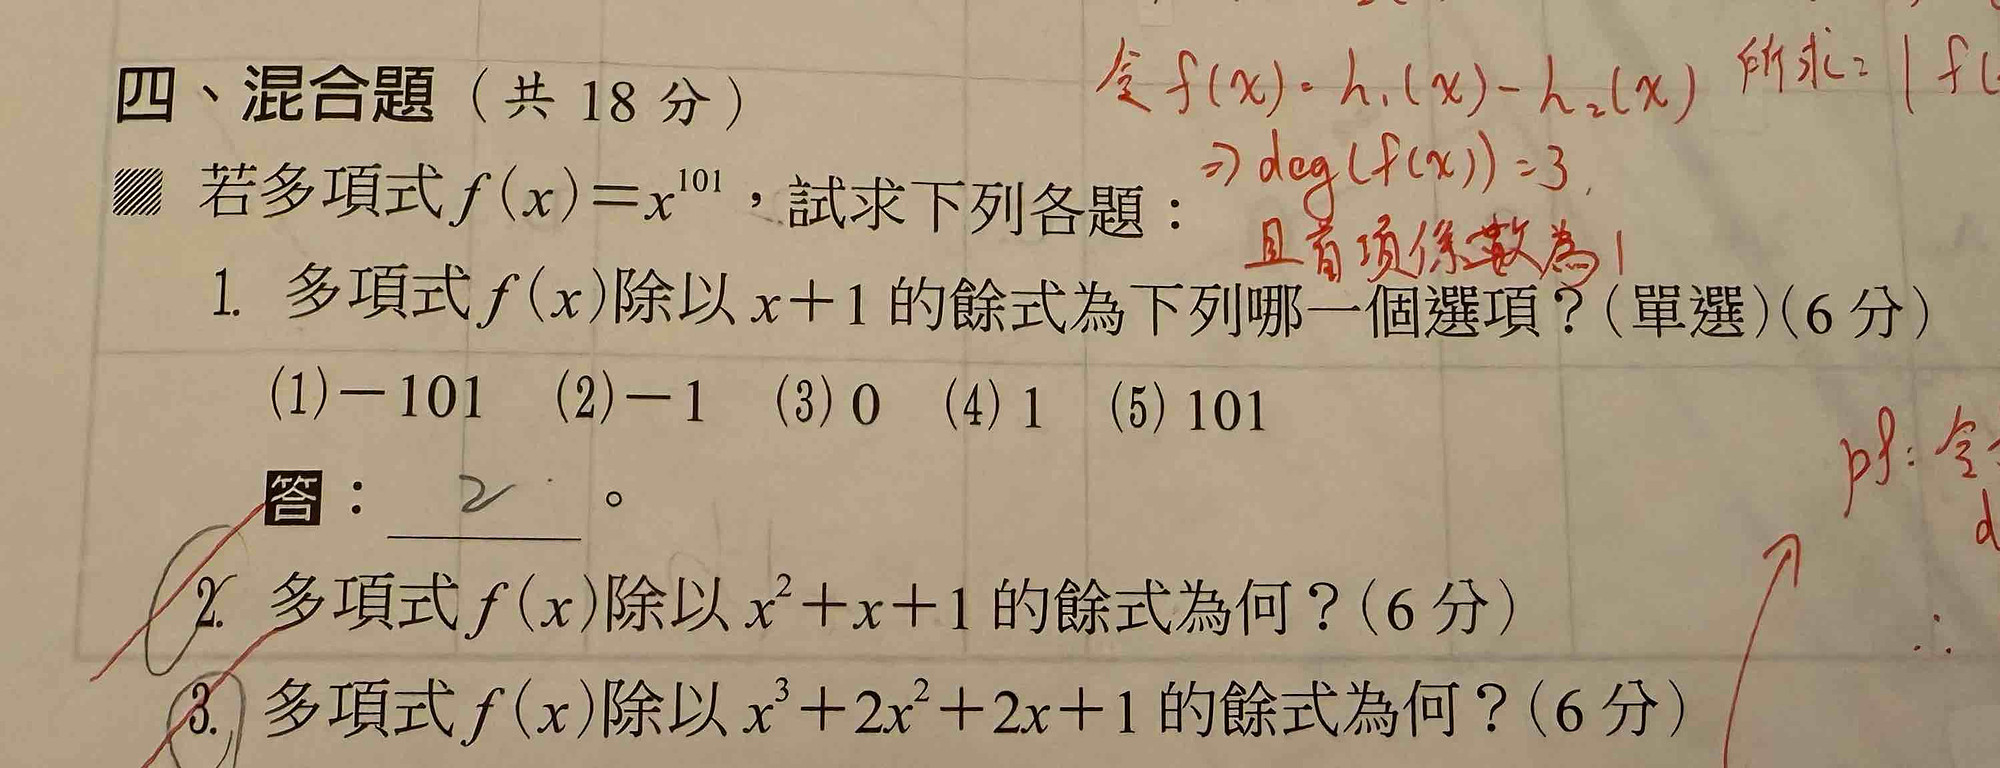 四、混合題（共 18 分）
令 f(x) = h₁(x) - h₂(x) 所求 = | f(
⇒ deg(f(x)) = 3,
若多項式 f(x)=x¹⁰¹，試求下列各題：
且首項係數為1
1. 多項式 f(x)除以 x+1 的餘式為下列哪一個選項？(單選)(6 分)
(1)－101 (2)－1 (3) 0 (4) 1 (5) 101
pf: 令
答： 2 。
d
2. 多項式 f(x)除以 x²+x+1 的餘式為何？(6 分)
∴
3. 多項式 f(x)除以 x³+2x²+2x+1 的餘式為何？(6 分)